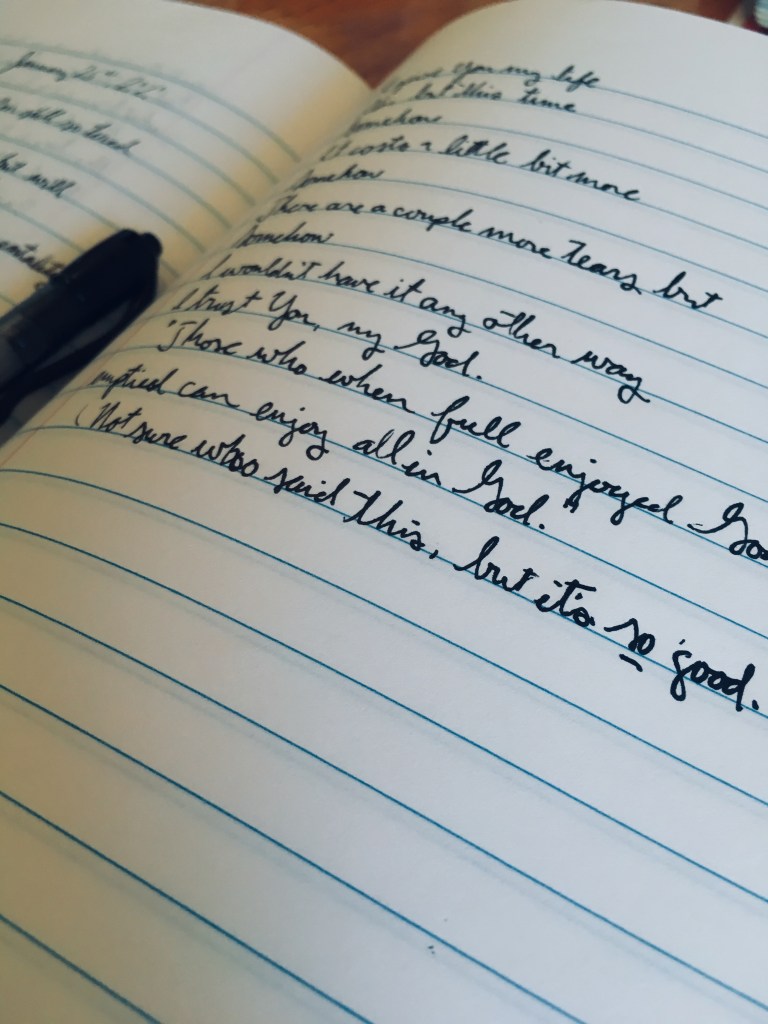 January 25th
still so
but with
You my life
but this time
Somehow
It costs a little bit more
Somehow
There are a couple more tears, but
Somehow
I wouldn't have it any other way
I trust You, my God.
"Those who when full enjoyed
emptied can enjoy all in God."
(Not sure who said this, but it's so good.